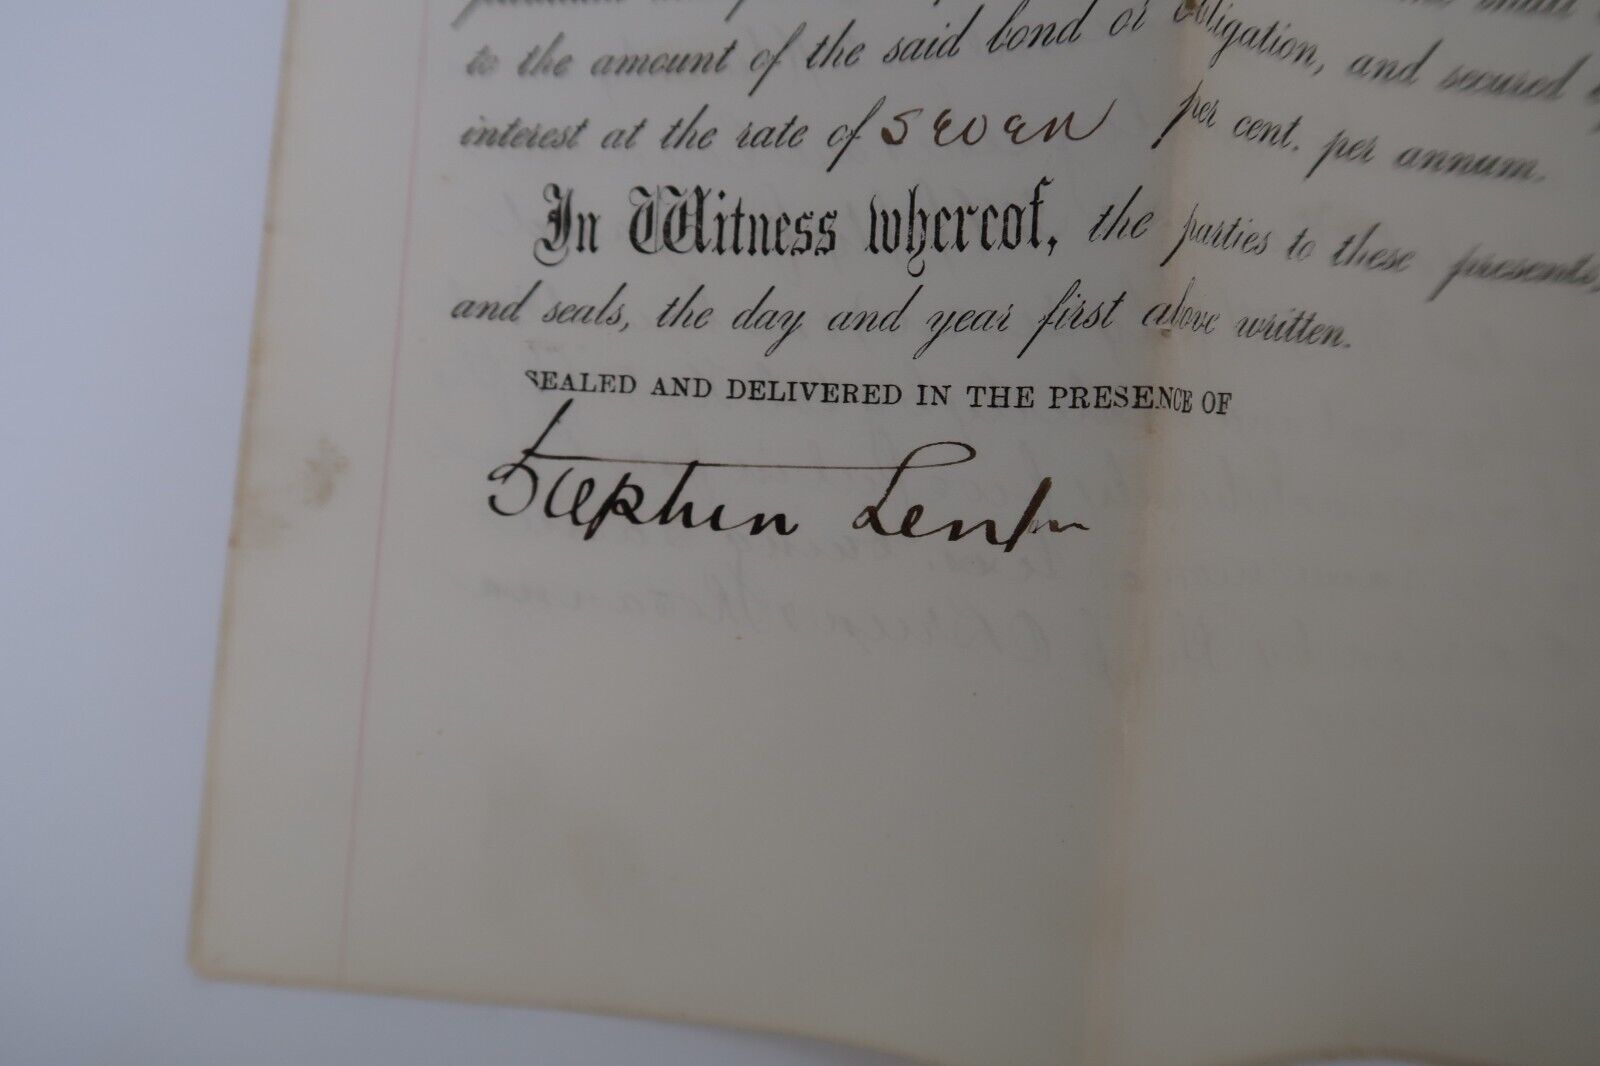 to the amount of the said bond or obligation, and secured
interest at the rate of seven per cent. per annum.
In Witness whereof, the parties to these presents,
and seals, the day and year first above written.
SEALED AND DELIVERED IN THE PRESENCE OF
Stephen